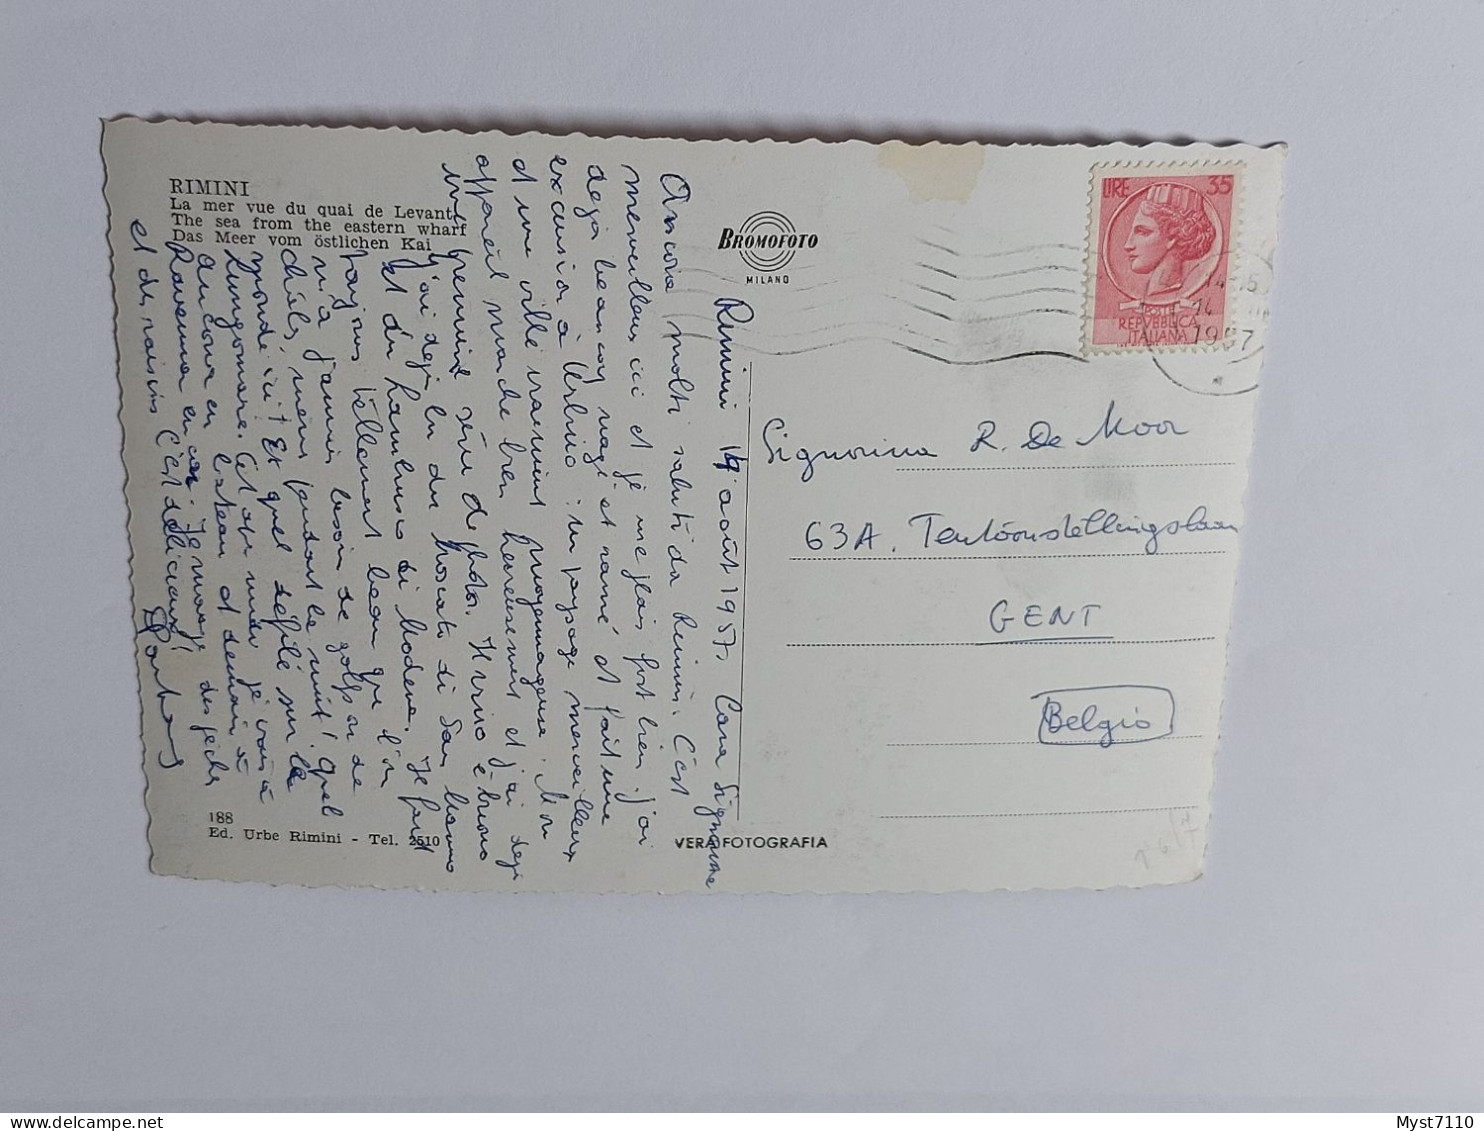 RIMINI
La mer vue du quai de Levant
The sea from the eastern wharf
Das Meer vom östlichen Kai
BROMOFOTO
MILANO
LIRE 35
REPVBBLICA
ITALIANA
1957
Rimini 14 août 1957. Cara Signorina
Ancora molti saluti da Rimini. C'est
merveilleux ici et je me plais fort bien. J'ai
déjà beaucoup nagé et ramé et fait une
excursion à Urbino : un paysage merveilleux
et une ville vraiment moyennageuse. Mon
appareil marche bien heureusement et j'ai déjà
une première série de photos. Il vino è buono
j'ai déjà bu du Moscato di San Marino
et du Lambrusco di Modena. Je fais
toujours tellement beau que l'on
n'a jamais besoin de golf ou de
châles, même pendant la nuit! Quel
monde ici! Et quel défilé sur le
Lungomare. Cet après-midi je vais à
Ancona en bateau et demain à
Ravenna en car. Je mange des pêches
et des raisins c'est délicieux!
Signorina R. De Moor
63A, Tentoonstellingslaan
GENT
Belgio
188
Ed. Urbe Rimini - Tel. 2510
VERA FOTOGRAFIA
Myst7110